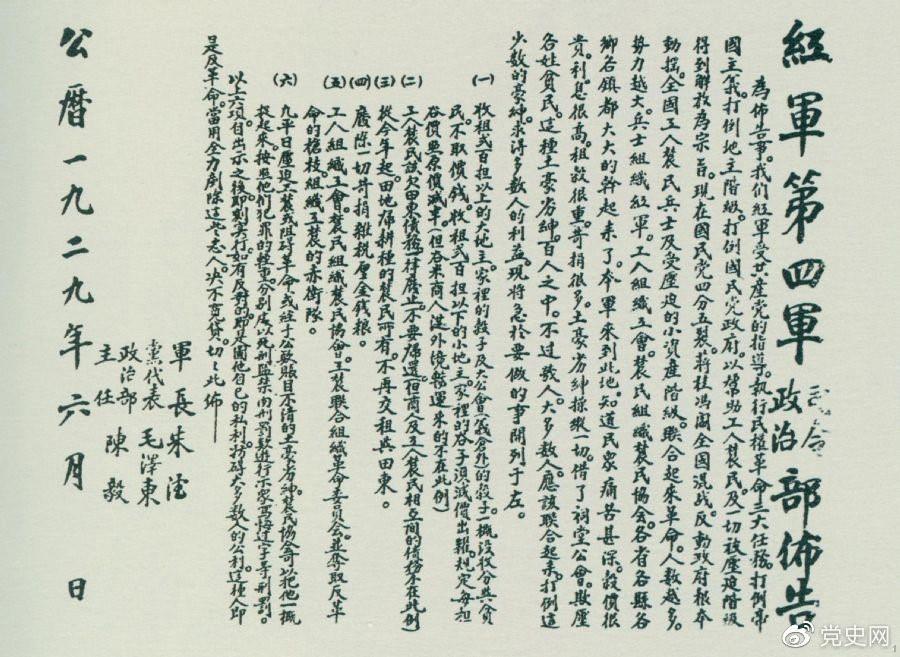 紅軍第四軍司令政治部佈告
為佈告事。我們紅軍受共產黨的指導。執行民權革命三大任務。打倒帝
國主義。打倒地主階級。打倒國民党政府。以幫助工人農民及一切被壓迫階級
得到解放為宗旨。現在國民党四分五裂。蔣桂馮閻全國混战。反動政府根本
動摇。全國工人農民兵士及受壓迫的小資產階級。联合起来革命。人数越多。
势力越大。兵士組織紅軍。工人組織工會。農民組織農民協會。各省各縣各
鄉各镇都大大的幹起来了。本軍来到此地。知道民眾痛苦甚深。穀價很
貴。利息很高。租穀很重。苛捐很多。土豪劣绅操縱一切。借了祠堂公會。欺壓
各姓貧民。這種土豪劣绅。百人之中。不过数人。大多数人。應該联合起来。打倒這
少数的豪绅。求得多数人的利益。現將急於要做的事開列于左。
(一) 收租弍百担以上的大地主。家裡的穀子及大公會(義倉外)的穀子。一概没收分與貧
民。不取價钱。收租弍百担以下的小地主。家裡的谷子。須減價出糶。規定每担
谷價照原價減半。(但谷米商人從外境轉運来的不在此例)
(二) 工人農民該欠田東債務。一律廢止。不要歸還。(但商人及工人農民相互間的債務不在此例)
(三) 從今年起。田地歸耕種的農民所有。不再交租與田東。
(四) 廢除一切苛捐雜税厘金錢粮。
(五) 工人組織工會。農民組織農民協會。工農联合組織革命委員會。並奪取反革
命的槍枝組織工農的赤衛隊。
(六) 凡平日壓迫工農或阻碍革命。或経手公欵賬目不清的土豪劣绅。農民協會可以把他一概
捉起来。按照他们犯罪的輕重。分别处以死刑監禁肉刑罰欵遊行示眾寫悔过字等刑罰。
以上六項自出示之後。即刻实行。如有反對的。即是圖他自己的私利。妨碍大多数人的公利。這種人即
是反革命。當用全力剷除這些之人。决不寬贷。切切此佈——
軍長 朱德
党代表 毛澤東
政治部主任 陳毅
公曆一九二九年六月 日
党史网
1